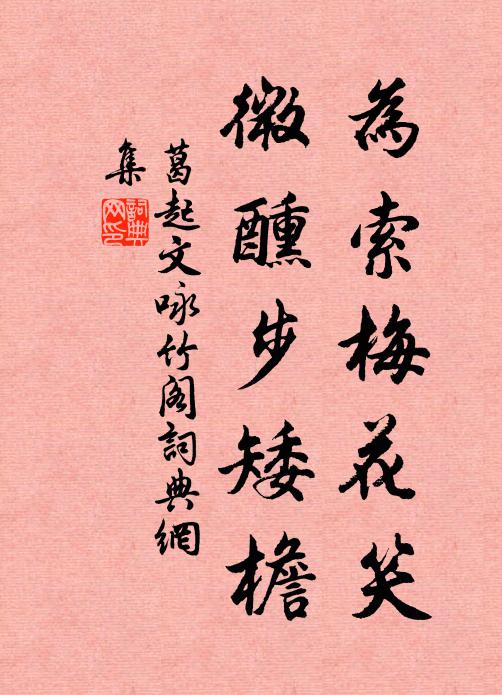 為索梅花笑
微醺步矮檐
葛起文咏竹阁詞典網
集
詞典
网印